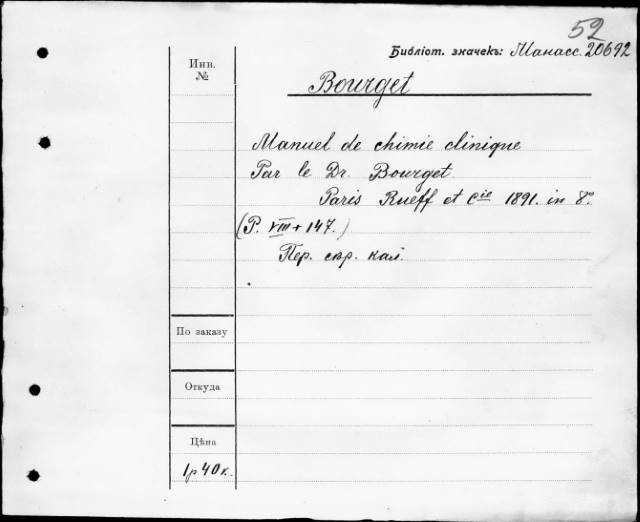 52
Библіот. значекъ: Манасс. 20692
Инв.
№
Bourget
Manuel de chimie clinique
Par le Dr. Bourget.
Paris Rueff et Cie 1891. in 8º.
(P. VIII + 147.)
Пер. сѣр. кал.
По заказу
Откуда
Цѣна
1р 40к.